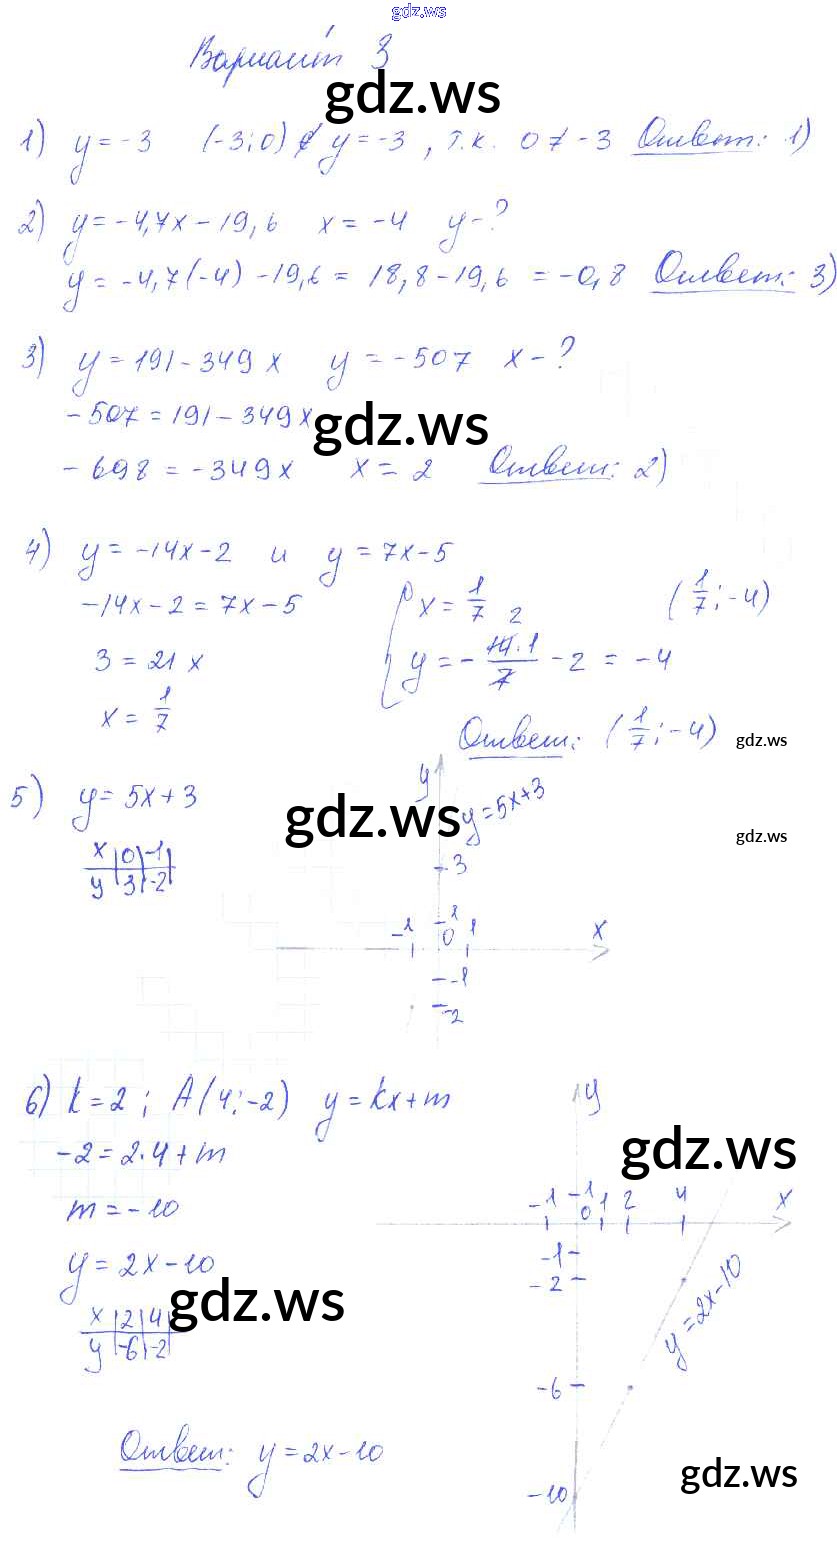 gdz.ws
Вариант 3
gdz.ws
1) y = -3 (-3; 0) ∉ y = -3, т.к. 0 ≠ -3 Ответ: 1)
2) y = -4,7x - 19,6 x = -4 y - ?
y = -4,7(-4) - 19,6 = 18,8 - 19,6 = -0,8 Ответ: 3)
3) y = 191 - 349x y = -507 x - ?
-507 = 191 - 349x
gdz.ws
-698 = -349x x = 2 Ответ: 2)
4) y = -14x - 2 и y = 7x - 5
-14x - 2 = 7x - 5 { x = 1/7 (1/7; -4)
3 = 21x y = - 14·1/7 - 2 = -4
2
x = 1/7
Ответ: (1/7; -4)
gdz.ws
5) y = 5x + 3
gdz.ws
y
y = 5x+3
gdz.ws
x | 0 | -1
y | 3 | -2
3
-1 1 0 1 x
-1
-2
6) k = 2; A(4; -2) y = kx + m
y
-2 = 2·4 + m
gdz.ws
m = -10
-1 1 0 1 2 4 x
y = 2x - 10
-1
-2
gdz.ws
y = 2x-10
x | 2 | 4
y | -6 | -2
-6
Ответ: y = 2x - 10
gdz.ws
-10